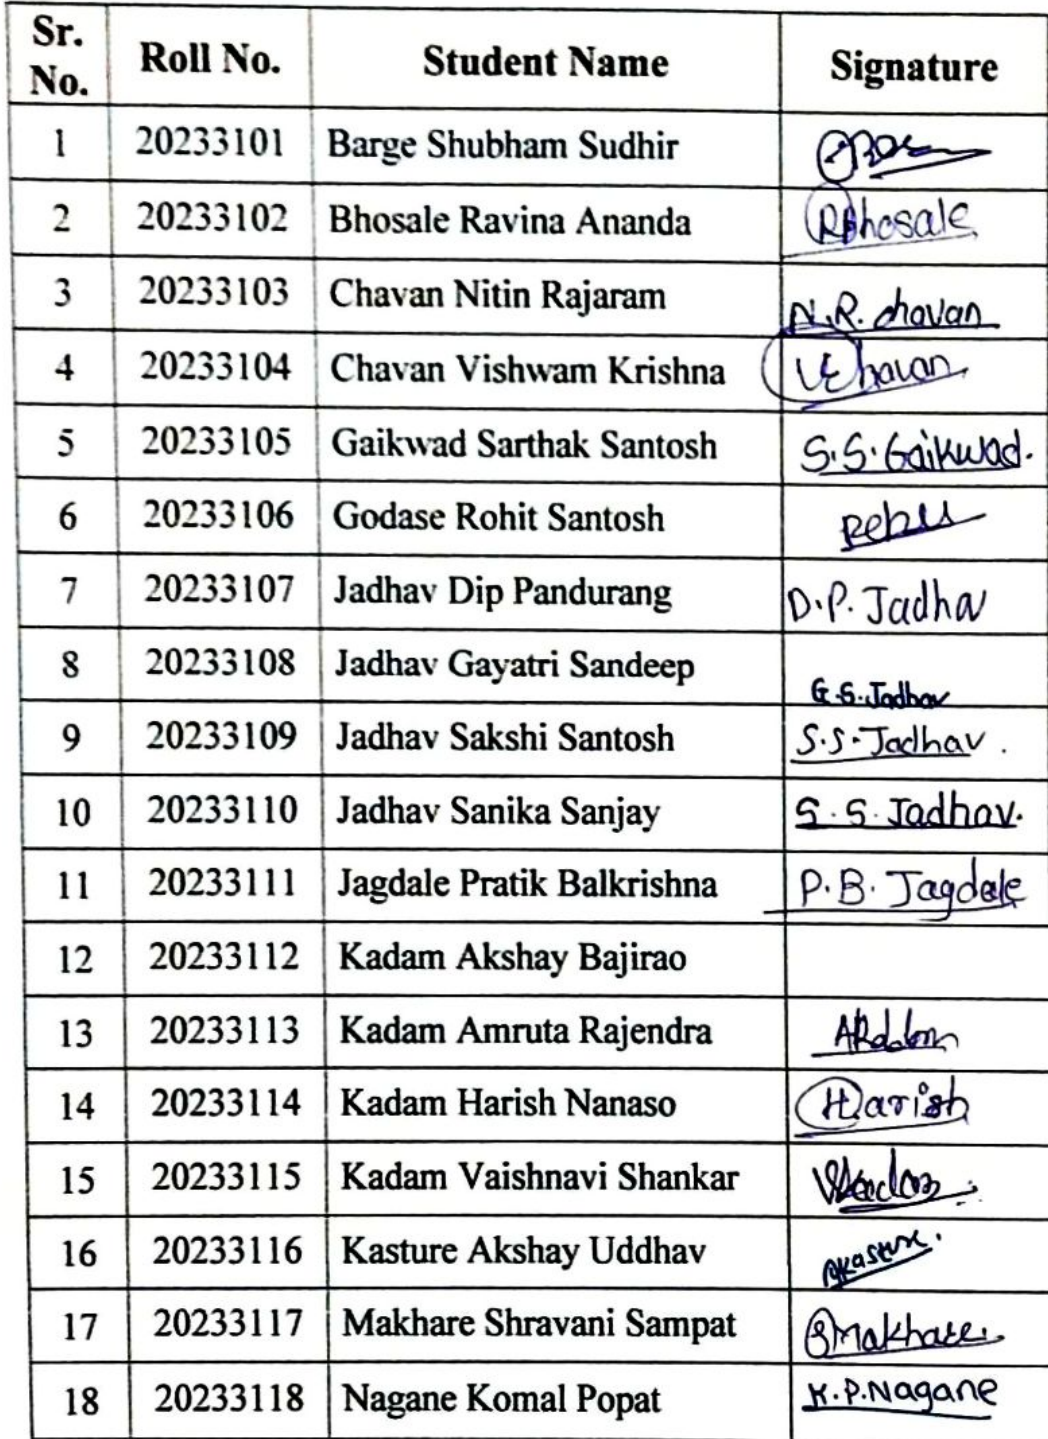 Sr. No. Roll No. Student Name Signature
1 20233101 Barge Shubham Sudhir
2 20233102 Bhosale Ravina Ananda RBhosale
3 20233103 Chavan Nitin Rajaram N.R. chavan
4 20233104 Chavan Vishwam Krishna VChavan
5 20233105 Gaikwad Sarthak Santosh S.S. Gaikwad.
6 20233106 Godase Rohit Santosh
7 20233107 Jadhav Dip Pandurang D.P. Jadhav
8 20233108 Jadhav Gayatri Sandeep G.S. Jadhav
9 20233109 Jadhav Sakshi Santosh S.S. Jadhav.
10 20233110 Jadhav Sanika Sanjay S.S. Jadhav.
11 20233111 Jagdale Pratik Balkrishna P.B. Jagdale
12 20233112 Kadam Akshay Bajirao
13 20233113 Kadam Amruta Rajendra
14 20233114 Kadam Harish Nanaso Harish
15 20233115 Kadam Vaishnavi Shankar
16 20233116 Kasture Akshay Uddhav AKasture.
17 20233117 Makhare Shravani Sampat SMakhare.
18 20233118 Nagane Komal Popat K.P.Nagane